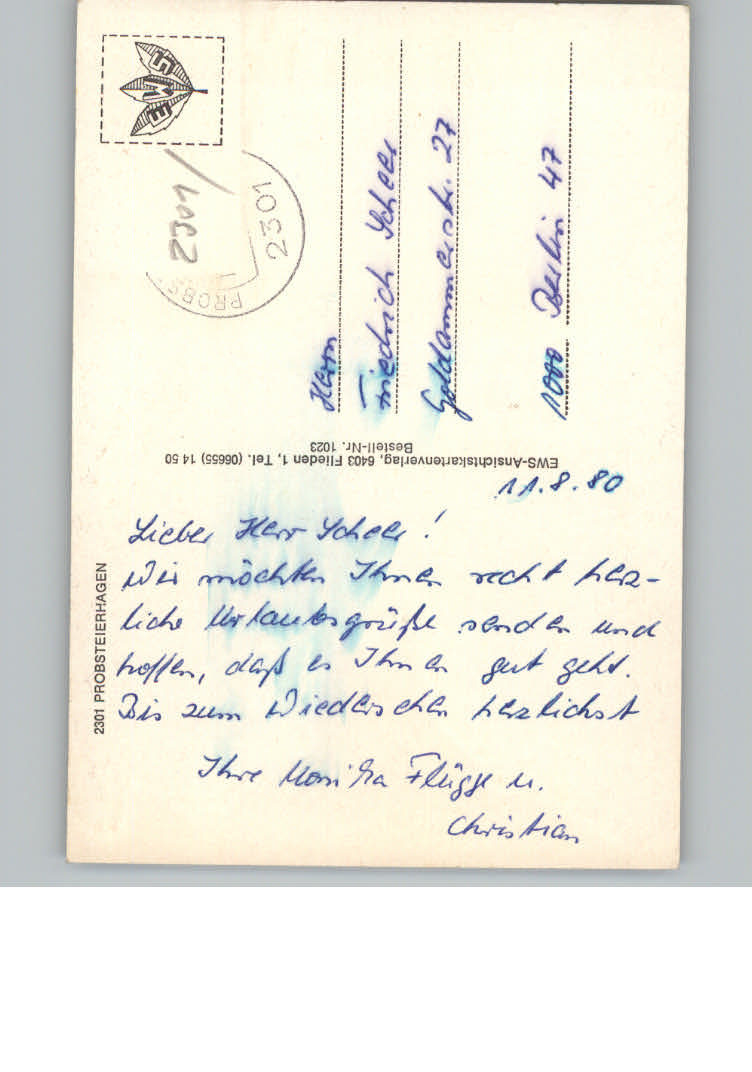 EWS
2301
2301
PROBS
Herrn
Friedrich Scheer
Goldammerstr. 27
1000 Berlin 47
EWS-Ansichtskartenverlag, 6403 Flieden 1, Tel. (06655) 14 50
Bestell-Nr. 1023
2301 PROBSTEIERHAGEN
11.8.80
Lieber Herr Scheer!
Wir möchten Ihnen recht herz-
liche Urlaubsgrüße senden und
hoffen, daß es Ihnen gut geht.
Bis zum Wiedersehen herzlichst
Ihre Monika Flügge u.
Christian